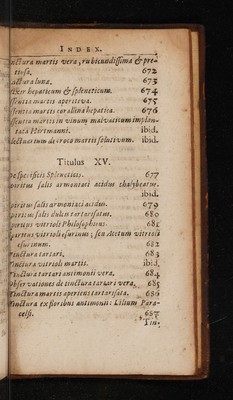 INDEX.
tinctura martis vera, rubicundissima & pre-
tiosa. 672
tinctura lunæ. 673
elixir hepaticum & spleneticum. 674
essentia martis aperitiva. 675
essentia martis corallina hepatica. 676
essentia martis in vinum malvaticum implan-
tata Hartmanni. ibid.
electuarium de croco martis solutivum. ibid.
Titulus XV.
De specificis Spleneticis. 677
spiritus salis armoniaci acidus chalybeatus.
ibid.
spiritus salis armoniaci acidus. 679
spiritus salis dulcis tartarisatus. 680
spiritus vitrioli Philosophicus. 681
spiritus vitrioli esurinus; seu acetum vitrioli
esurinum. 682
tinctura tartari. 683
tinctura vitrioli martis. ibid.
Tinctura tartari antimonii vera. 684
Observationes de tinctura tartari vera. 685
Tinctura martis aperiens tartarisata. 686
Tinctura ex floribus antimonii: Lilium Para-
celsi. 687
Tin-